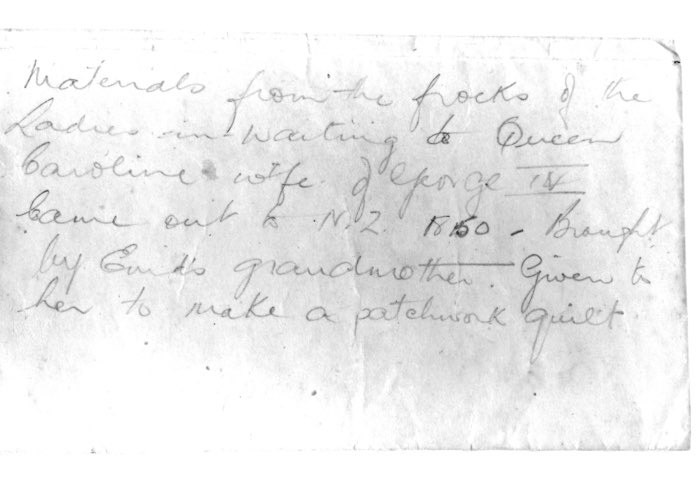 Materials from the frocks of the
Ladies in waiting to Queen
Caroline wife of George IV
Came out to N.Z. 1850 - Brought
by Enid's grandmother. Given to
her to make a patchwork quilt